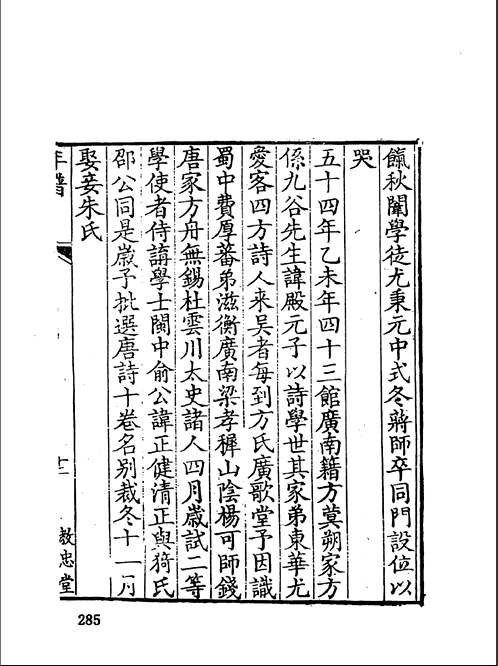 餼秋闈學徒尤秉元中式冬蔣師卒同門設位以
哭
五十四年乙未年四十三館廣南籍方蓂朔家方
係九谷先生諱殿元子以詩學世其家弟東華尤
愛客四方詩人来吳者每到方氏廣歌堂予因識
蜀中費厚蕃弟滋衡廣南梁孝穉山陰楊可師錢
唐家方舟無錫杜雲川太史諸人四月歲試二等
學使者侍講學士閩中俞公諱正健清正與猗氏
邵公同是歲予批選唐詩十卷名別裁冬十一月
娶妾朱氏
年譜
十二
教忠堂
285